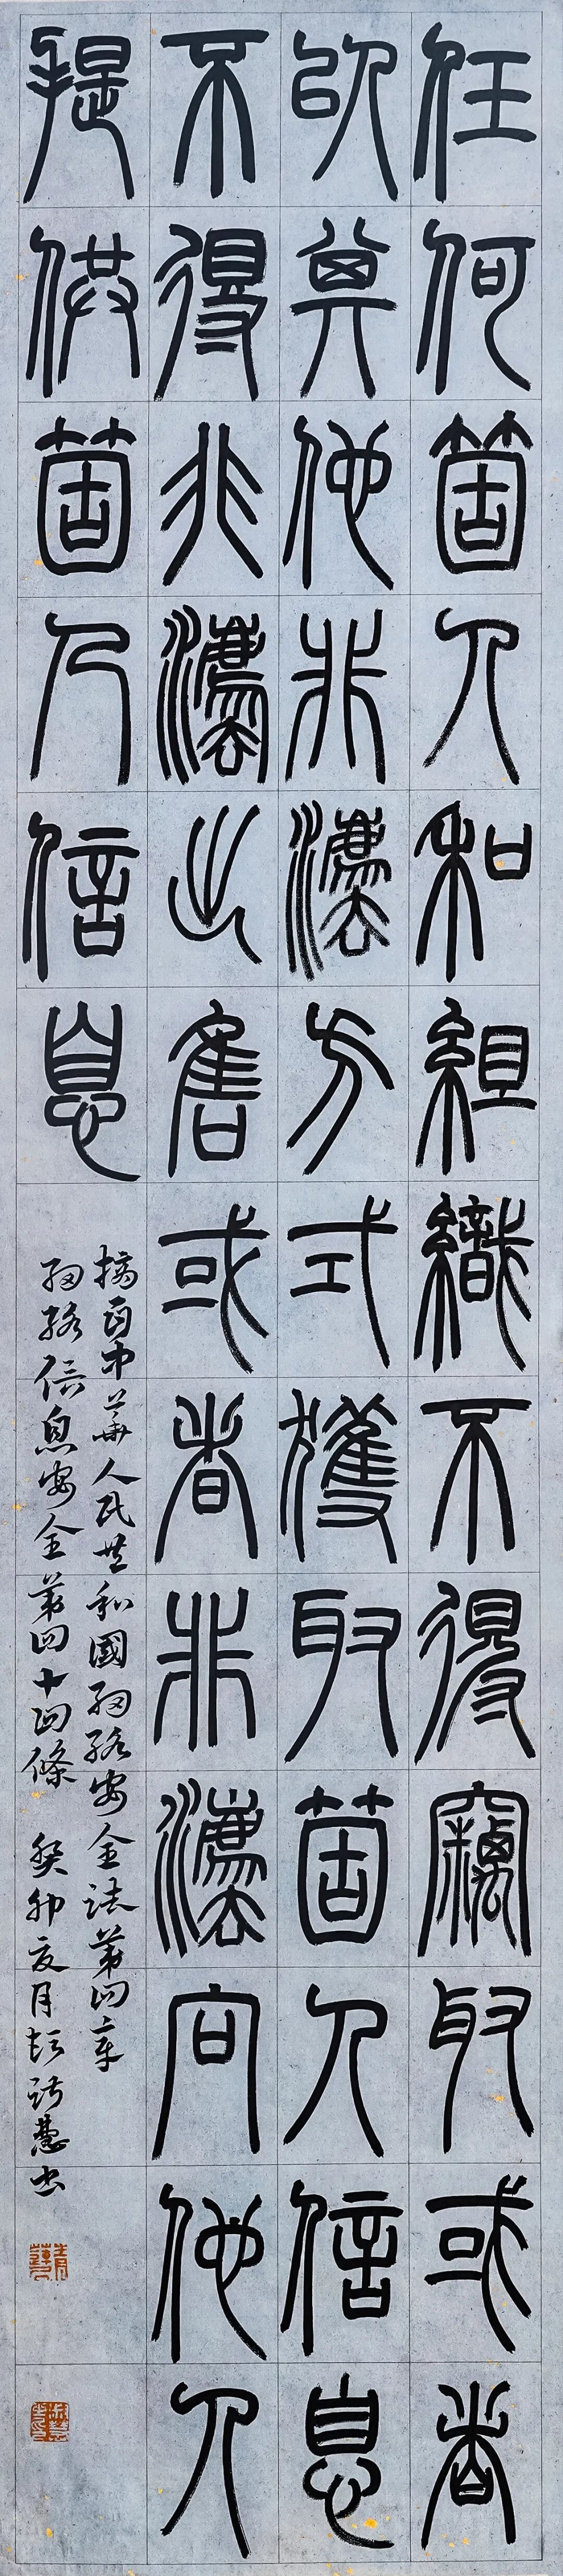 任何箇人和組織不得竊取或者
以其他非灋方式獲取箇人信息
不得非灋出售或者非灋向他人
提供箇人信息
摘自中華人民共和國網絡安全法第四章
網絡信息安全第四十四條 癸卯夏月 書